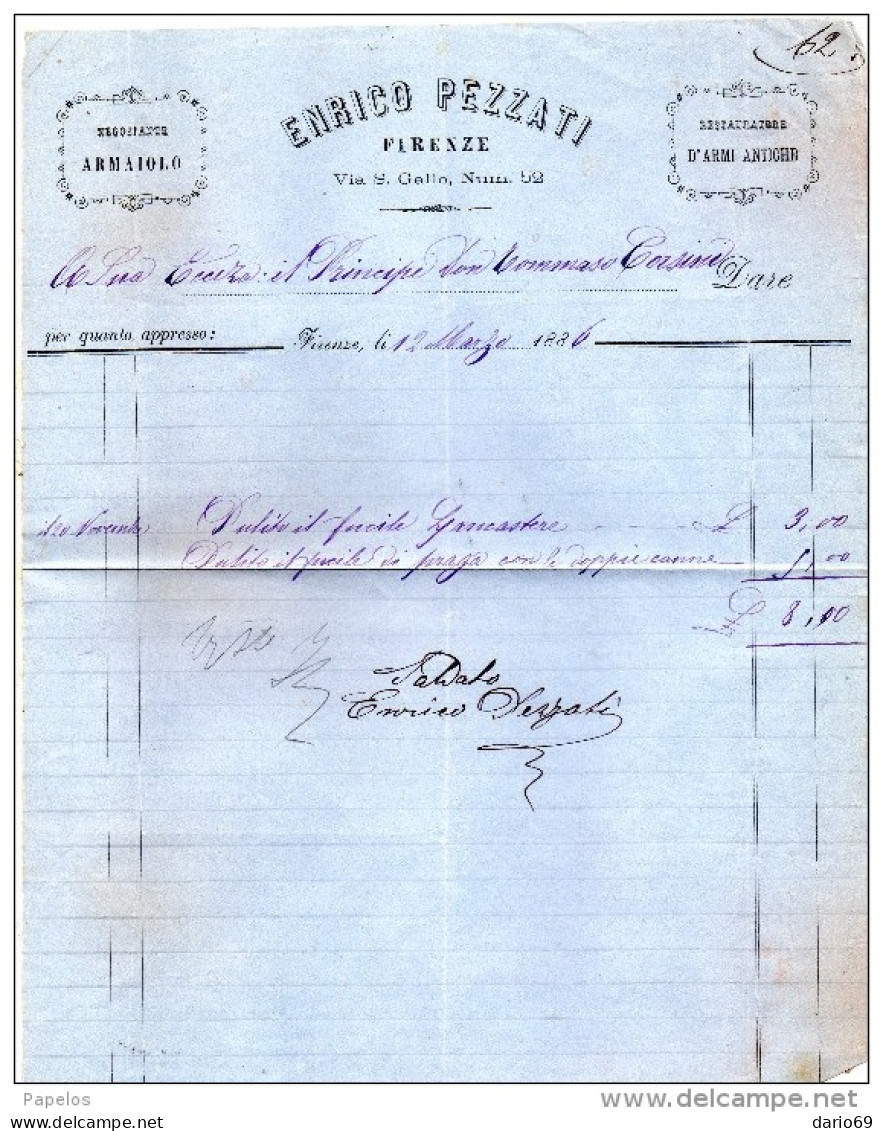 62
ENRICO PEZZATI
NEGOZIANTE
ARMAIOLO
FIRENZE
Via S. Gallo, Num. 52
RESTAURATORE
D'ARMI ANTICHE
A Sua Eccza: il Principe Don Tommaso Corsini Dare
per quanto appresso: Firenze, li 12 Marzo 1886
Pulito il fucile Lancastere L 3,00
Pulito il fucile di praga con le doppie canne 5,00
L 8,00
Saldato
Enrico Pezzati
Papelos
www.delcampe.net
dario69